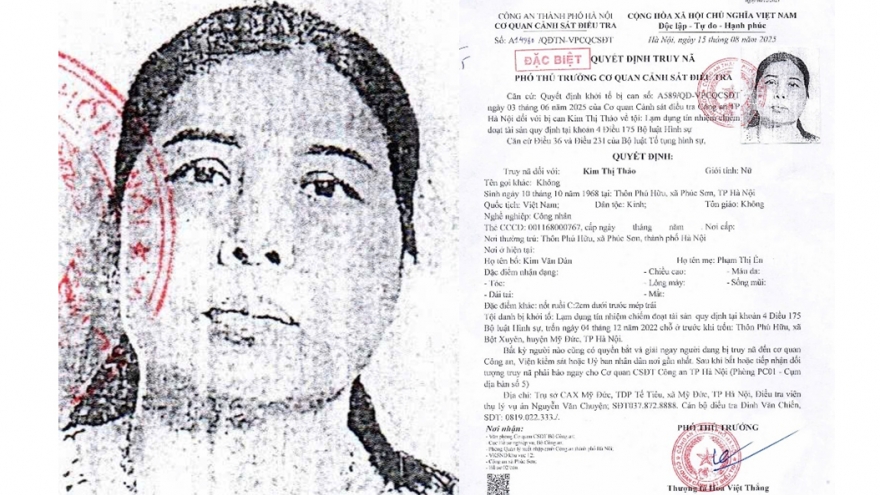 CÔNG AN THÀNH PHỐ HÀ NỘI
CƠ QUAN CẢNH SÁT ĐIỀU TRA
CỘNG HÒA XÃ HỘI CHỦ NGHĨA VIỆT NAM
Độc lập - Tự do - Hạnh phúc
Số: /QĐTN-VPCQCSĐT
Hà Nội, ngày 15 tháng 08 năm 2025
ĐẶC BIỆT
QUYẾT ĐỊNH TRUY NÃ
PHÓ THỦ TRƯỞNG CƠ QUAN CẢNH SÁT ĐIỀU TRA
Căn cứ: Quyết định khởi tố bị can số: A589/QĐ-VPCQCSĐT
ngày 03 tháng 06 năm 2025 của Cơ quan Cảnh sát điều tra Công an TP
Hà Nội đối với bị can Kim Thị Thảo về tội: Lạm dụng tín nhiệm chiếm
đoạt tài sản quy định tại khoản 4 Điều 175 Bộ luật Hình sự
Căn cứ Điều 36 và Điều 231 của Bộ luật Tố tụng hình sự,
QUYẾT ĐỊNH:
Truy nã đối với: Kim Thị Thảo Giới tính: Nữ
Tên gọi khác: Không
Sinh ngày 10 tháng 10 năm 1968 tại: Thôn Phú Hữu, xã Phúc Sơn, TP Hà Nội
Quốc tịch: Việt Nam; Dân tộc: Kinh; Tôn giáo: Không
Nghề nghiệp: Công nhân
Thẻ CCCD: 001168000767, cấp ngày tháng năm . Nơi cấp:
Nơi thường trú: Thôn Phú Hữu, xã Phúc Sơn, thành phố Hà Nội
Nơi ở hiện tại:
Họ tên bố: Kim Văn Dân Họ tên mẹ: Phạm Thị Én
Đặc điểm nhận dạng: - Chiều cao: - Màu da:
- Tóc: - Lông mày: - Sống mũi:
- Dái tai: - Mắt:
Đặc điểm khác: nốt ruồi C:2cm dưới trước mép trái
Tội danh bị khởi tố: Lạm dụng tín nhiệm chiếm đoạt tài sản quy định tại khoản 4 Điều 175
Bộ luật Hình sự, trốn ngày 04 tháng 12 năm 2022 chỗ ở trước khi trốn: Thôn Phú Hữu, xã
Bột Xuyên, huyện Mỹ Đức, TP Hà Nội.
Bất kỳ người nào cũng có quyền bắt và giải ngay người đang bị truy nã đến cơ quan
Công an, Viện kiểm sát hoặc Uỷ ban nhân dân nơi gần nhất. Sau khi bắt hoặc tiếp nhận đối
tượng truy nã phải báo ngay cho Cơ quan CSĐT Công an TP Hà Nội (Phòng PC01 - Cụm
địa bàn số 5)
Địa chỉ: Trụ sở CAX Mỹ Đức, TDP Tế Tiêu, xã Mỹ Đức, TP Hà Nội, Điều tra viên
thụ lý vụ án Nguyễn Văn Chuyện; SĐT037.872.8888. Cán bộ điều tra Đinh Văn Chiến,
SĐT: 0819.022.333./.
Nơi nhận:
PHÓ THỦ TRƯỞNG
- Văn phòng Cơ quan CSĐT Bộ Công an;
- Phòng Quản lý xuất nhập cảnh Công an thành phố Hà Nội;
- Công an xã Phúc Sơn;
Thượng tá Hoa Việt Thắng